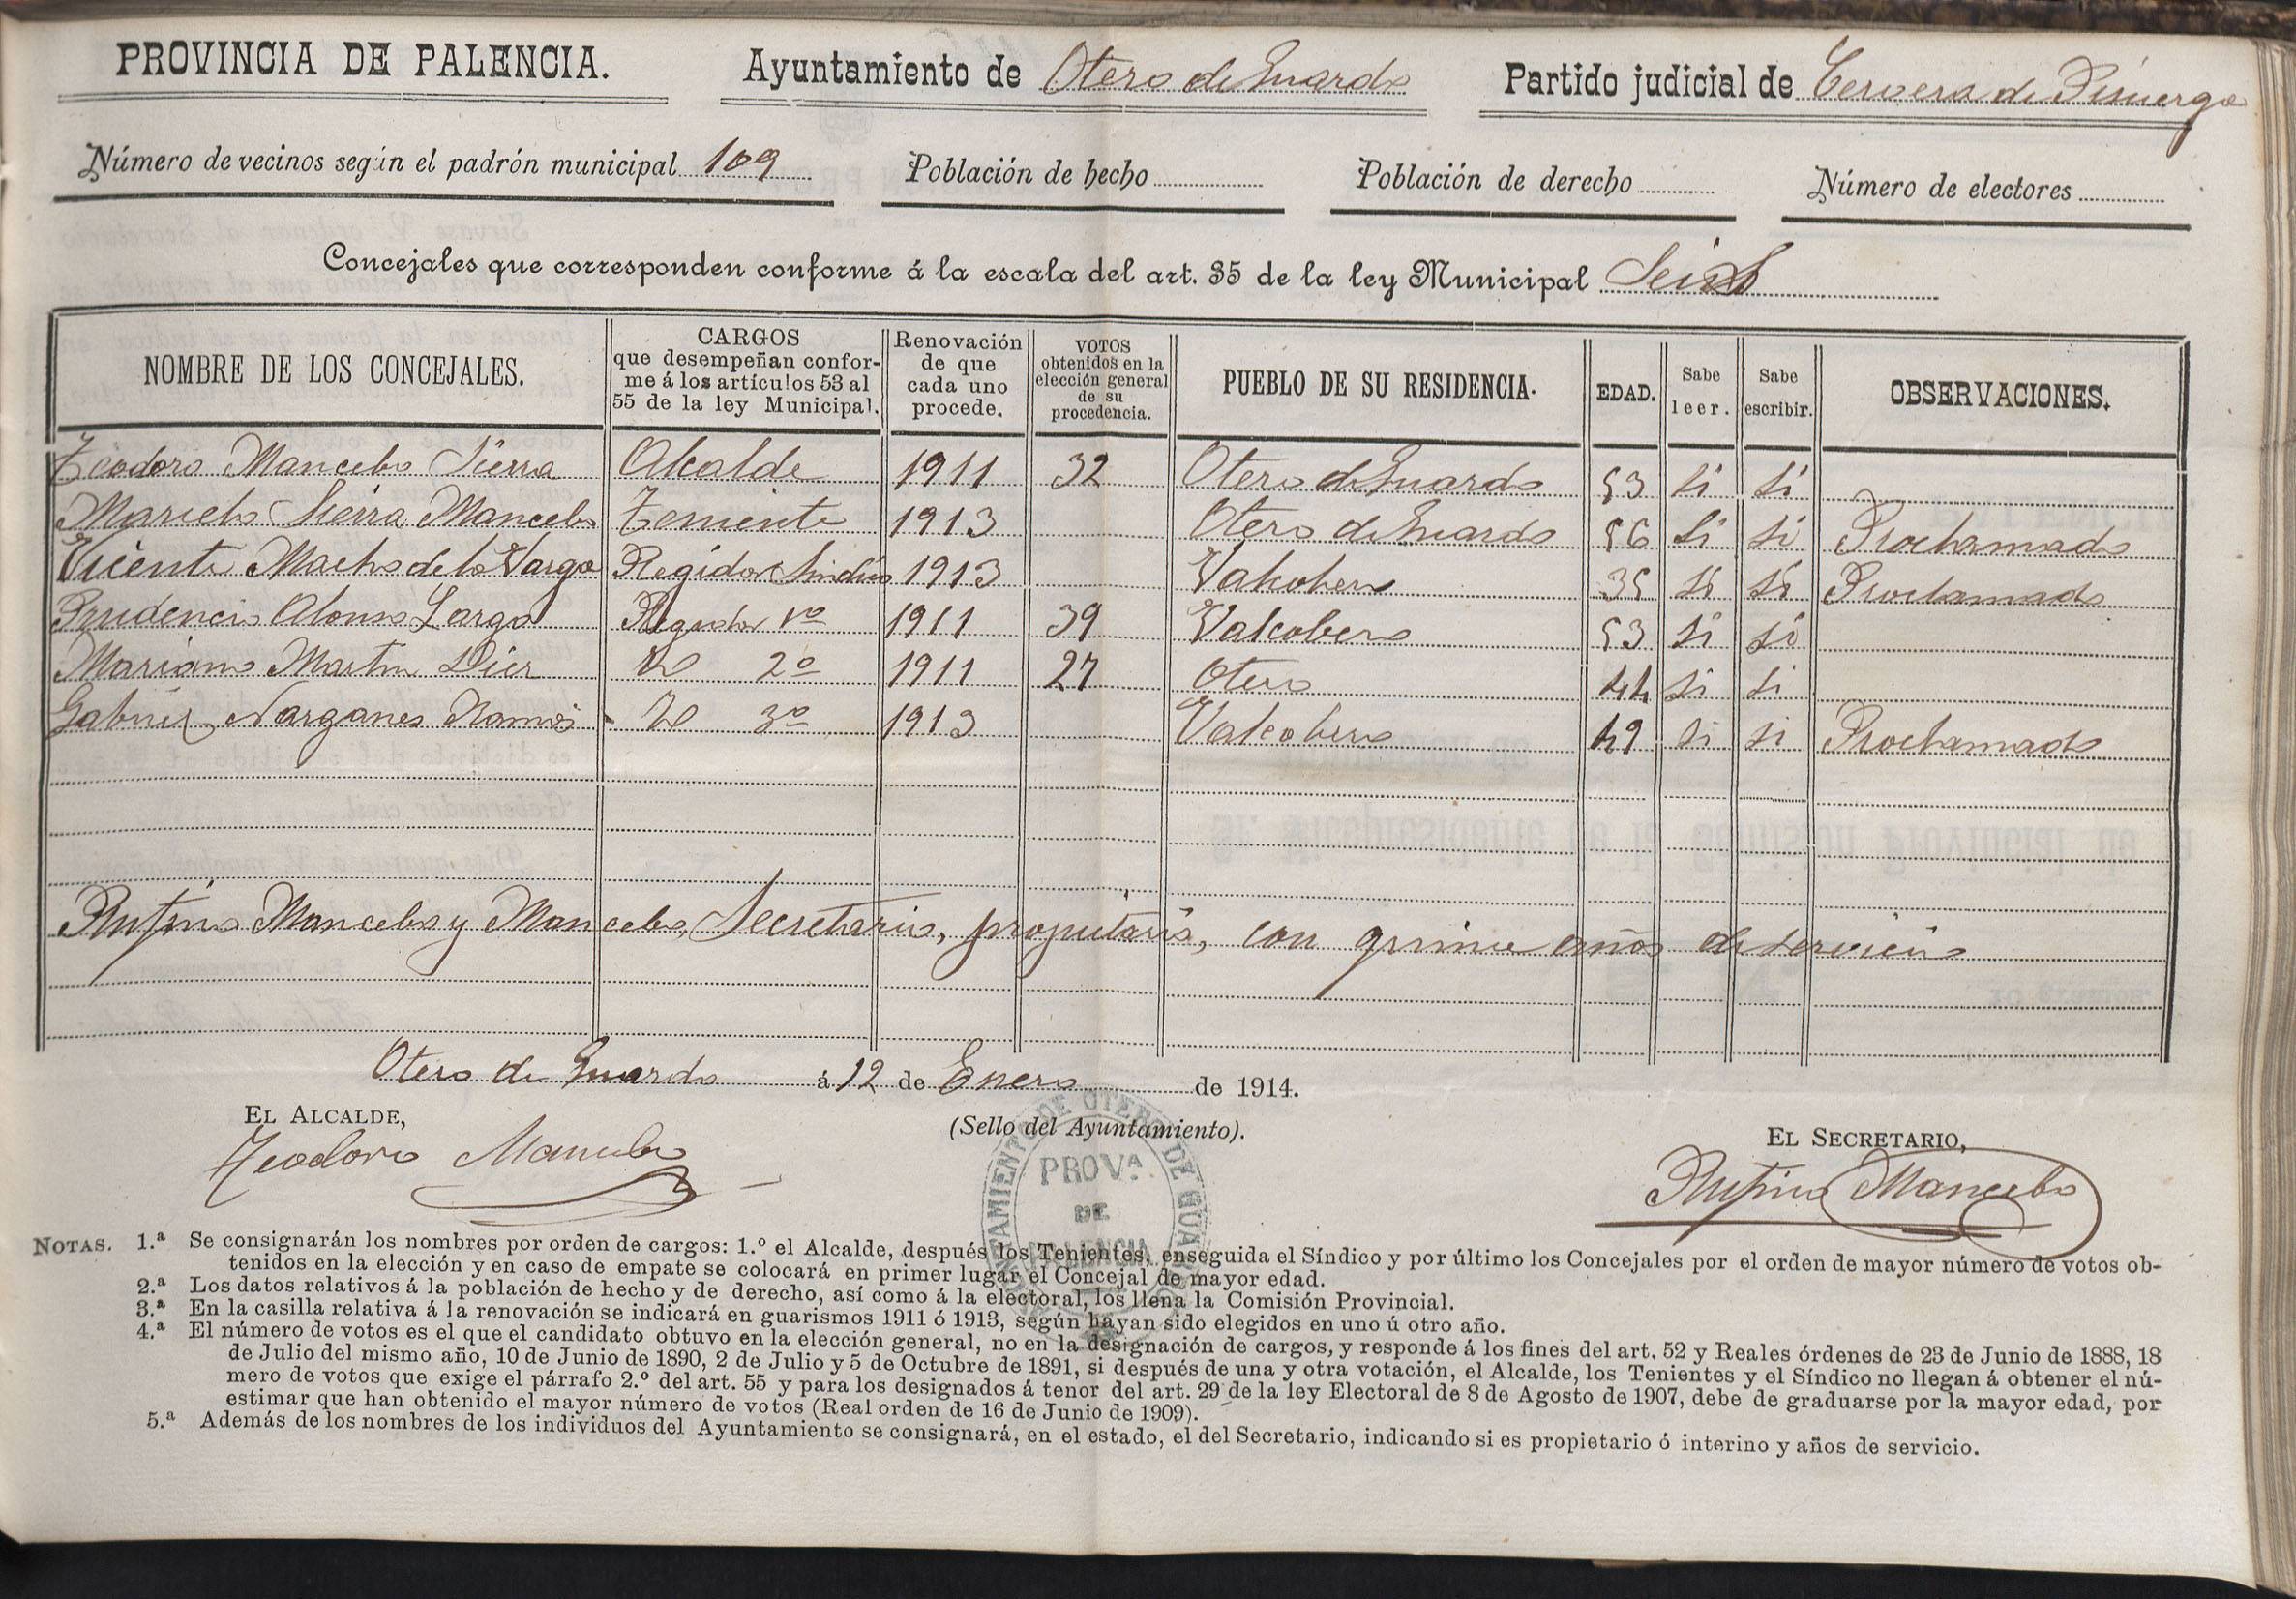 PROVINCIA DE PALENCIA. Ayuntamiento de Otero de Guardo Partido judicial de Cervera de Pisuerga
Número de vecinos según el padrón municipal 109 Población de hecho Población de derecho Número de electores
Concejales que corresponden conforme á la escala del art. 35 de la ley Municipal Seis
NOMBRE DE LOS CONCEJALES. CARGOS que desempeñan conforme á los artículos 53 al 55 de la ley Municipal. Renovación de que cada uno procede. VOTOS obtenidos en la elección general de su procedencia. PUEBLO DE SU RESIDENCIA. EDAD. Sabe leer. Sabe escribir. OBSERVACIONES.
Teodoro Mancebo Sierra Alcalde 1911 32 Otero de Guardo 53 si si
Marcelo Sierra Mancebo Teniente 1913 Otero de Guardo 56 si si Proclamado
Vicente Macho de la Varga Regidor Sindico 1913 Valcobero 35 si si Proclamado
Prudencio Alonso Largo Regidor 1º 1911 39 Valcobero 53 si si
Mariano Martin Diez Id 2º 1911 27 Otero 44 si si
Gabriel Narganes Ramos Id 3º 1913 Valcobero 49 si si Proclamado
Rufino Mancebo y Mancebo, Secretario, propietario, con quince años de servicio
Otero de Guardo á 12 de Enero de 1914.
EL ALCALDE, (Sello del Ayuntamiento). EL SECRETARIO,
Teodoro Mancebo Rufino Mancebo
AYUNTAMIENTO DE OTERO DE GUARDO
PROVA.
DE
PALENCIA
NOTAS. 1.ª Se consignarán los nombres por orden de cargos: 1.º el Alcalde, después los Tenientes, enseguida el Síndico y por último los Concejales por el orden de mayor número de votos ob-
tenidos en la elección y en caso de empate se colocará en primer lugar el Concejal de mayor edad.
2.ª Los datos relativos á la población de hecho y de derecho, así como á la electoral, los llena la Comisión Provincial.
3.ª En la casilla relativa á la renovación se indicará en guarismos 1911 ó 1913, según hayan sido elegidos en uno ú otro año.
4.ª El número de votos es el que el candidato obtuvo en la elección general, no en la designación de cargos, y responde á los fines del art. 52 y Reales órdenes de 23 de Junio de 1888, 18
de Julio del mismo año, 10 de Junio de 1890, 2 de Julio y 5 de Octubre de 1891, si después de una y otra votación, el Alcalde, los Tenientes y el Síndico no llegan á obtener el nú-
mero de votos que exige el párrafo 2.º del art. 55 y para los designados á tenor del art. 29 de la ley Electoral de 8 de Agosto de 1907, debe de graduarse por la mayor edad, por
estimar que han obtenido el mayor número de votos (Real orden de 16 de Junio de 1909).
5.ª Además de los nombres de los individuos del Ayuntamiento se consignará, en el estado, el del Secretario, indicando si es propietario ó interino y años de servicio.